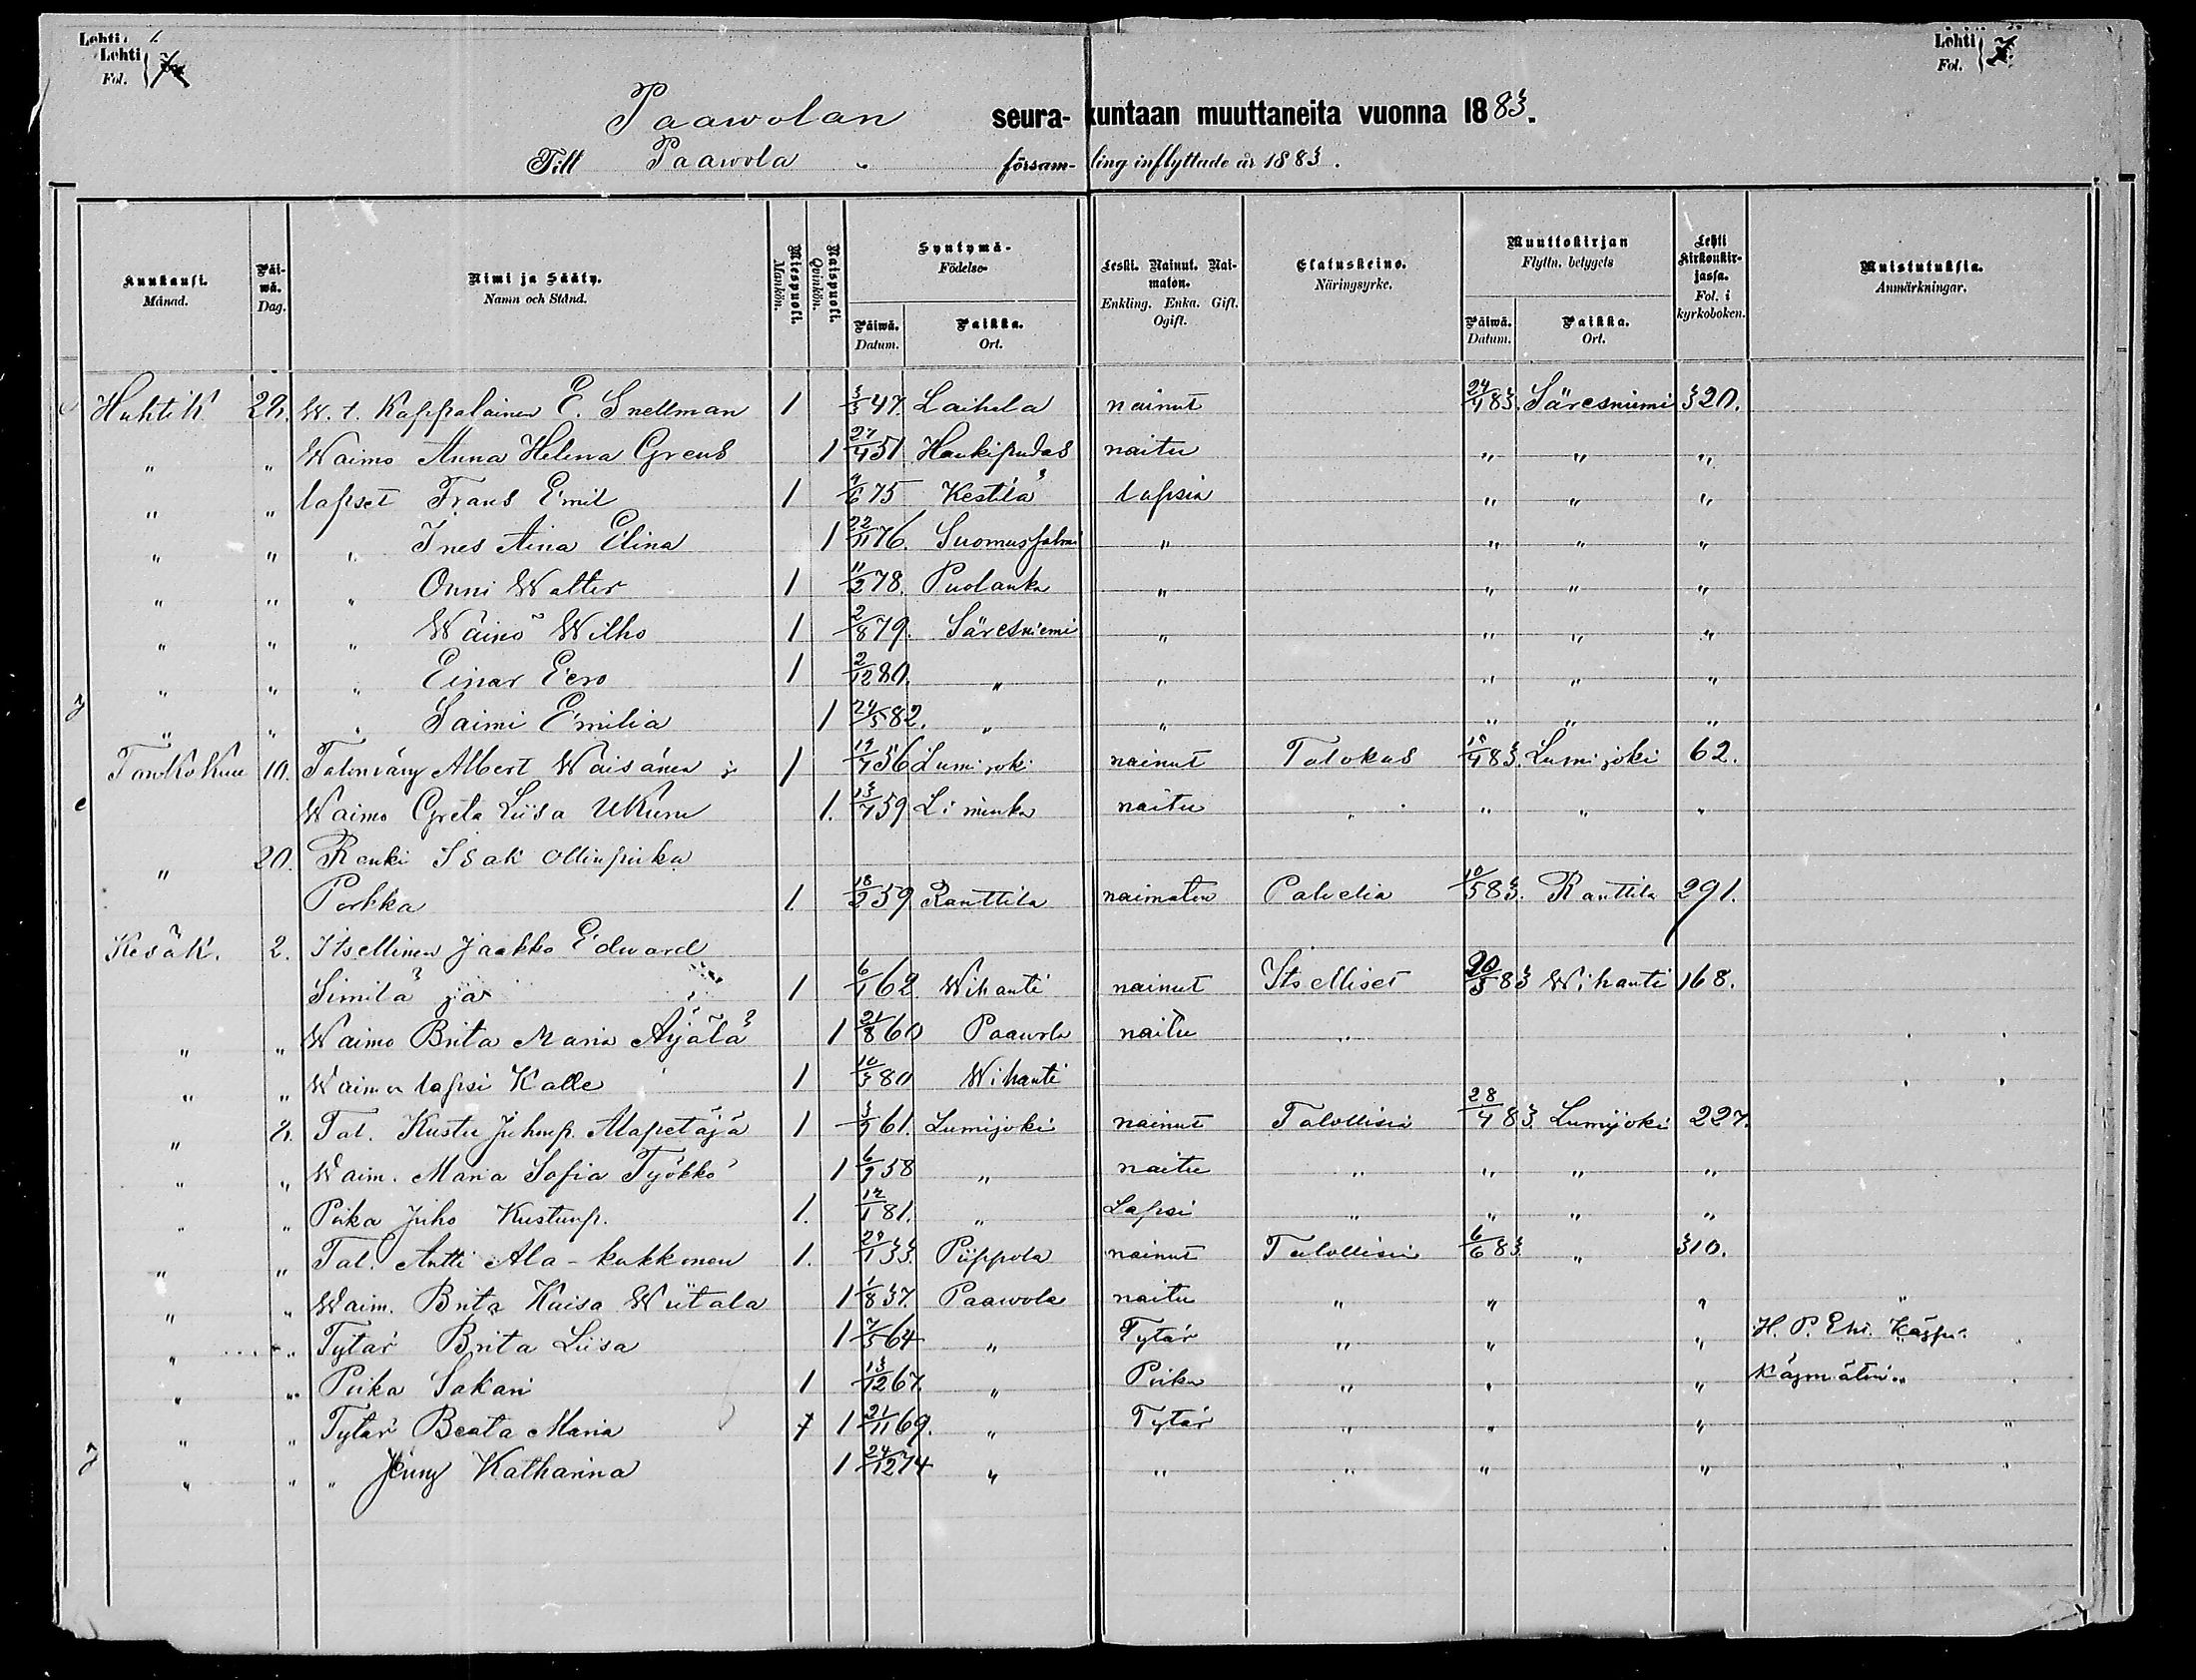 Lehti
Lehti
Fol.
Lehti
Fol.
Paawolan seurakuntaan muuttaneita vuonna 1883.
Till Paawola församling inflyttade år 1883.
Kuukausi. Månad. | Päiwä. Dag. | Nimi ja Sääty. Namn och Stånd. | Miespuoli. Mankön. | Naispuoli. Quinkön. | Syntymä- Födelse- Päiwä. Datum. | Paikka. Ort. | Leski. Nainut. Naimaton. Enkling. Enka. Gift. Ogift. | Elatuskeino. Näringsyrke. | Muuttokirjan Flyttn. betygets Päiwä. Datum. | Paikka. Ort. | Lehti kirkonkirjassa. Fol. i kyrkoboken. | Muistutuksia. Anmärkningar.
Huhtik. 29. W. t. Kappalainen E. Snellman 1 3/3 47. Laihela nainut 24/4 83. Säresniemi 320.
" " Waimo Anna Helena Greus 1 27/4 51 Haukipudas naitu " " "
" " lapset Frans Emil 1 4/6 75 Kestilä lapsia " " "
" " " Ines Aina Elina 1 22/11 76. Suomussalmi " " " "
" " " Onni Walter 1 11/2 78. Puolanka " " " "
" " " Wäinö Wilho 1 2/8 79. Säresniemi " " " "
" " " Einar Eero 1 2/12 80. " " " " "
" " " Saimi Emilia 1 24/5 82. " " " " "
Toukokuu 10. Talonväny Albert Wäisänen 1 19/4 56 Lumijoki nainut Talokas 18/4 83. Lumijoki 62.
Waimo Greta Liisa Ukuru 1. 13/4 59 Liminka naitu " " " "
" 20. Renki Isak Ollinpoika
Porkka 1 18/2 59 Ranttila naimaton Palvelia 10/5 83. Ranttila 291.
Kesäk. 2. Itsellinen Jaakko Edward
Similä ja 1 6/1 62 Wihanti nainut Itselliset 20/5 83 Wihanti 168.
" " Waimo Brita Maria Äijälä 1 21/8 60 Paawola naitu "
" " Waimon lapsi Kalle 1 10/3 80 Wihanti
" 2. Tal. Kustu Juhonp. Alapetäjä 1 3/7 61. Lumijoki nainut Talollisia 28/4 83. Lumijoki 227.
" " Waim. Maria Sofia Työkkö 1 6/7 58 " naitu " " " "
" " Poika Juho Kustunp. 1. 12/1 81. " Lapsi " " " "
" " Tal. Antti Ala-kukkonen 1. 29/1 33. Piippola nainut Talollisia 6/6 83. " 310.
" " Waim. Brita Kaisa Wiitala 1 1/8 37. Paawola naitu " " " "
" " Tytär Brita Liisa 1 7/5 64 " Tytär " " " H. P. Eht.
" " Poika Sakari 1 13/12 67. " Poika " " "
" " Tytär Beata Maria 1 21/11 69. " Tytär " " " "
" " " Jenny Katharina 1 24/12 74 " " " " " " "